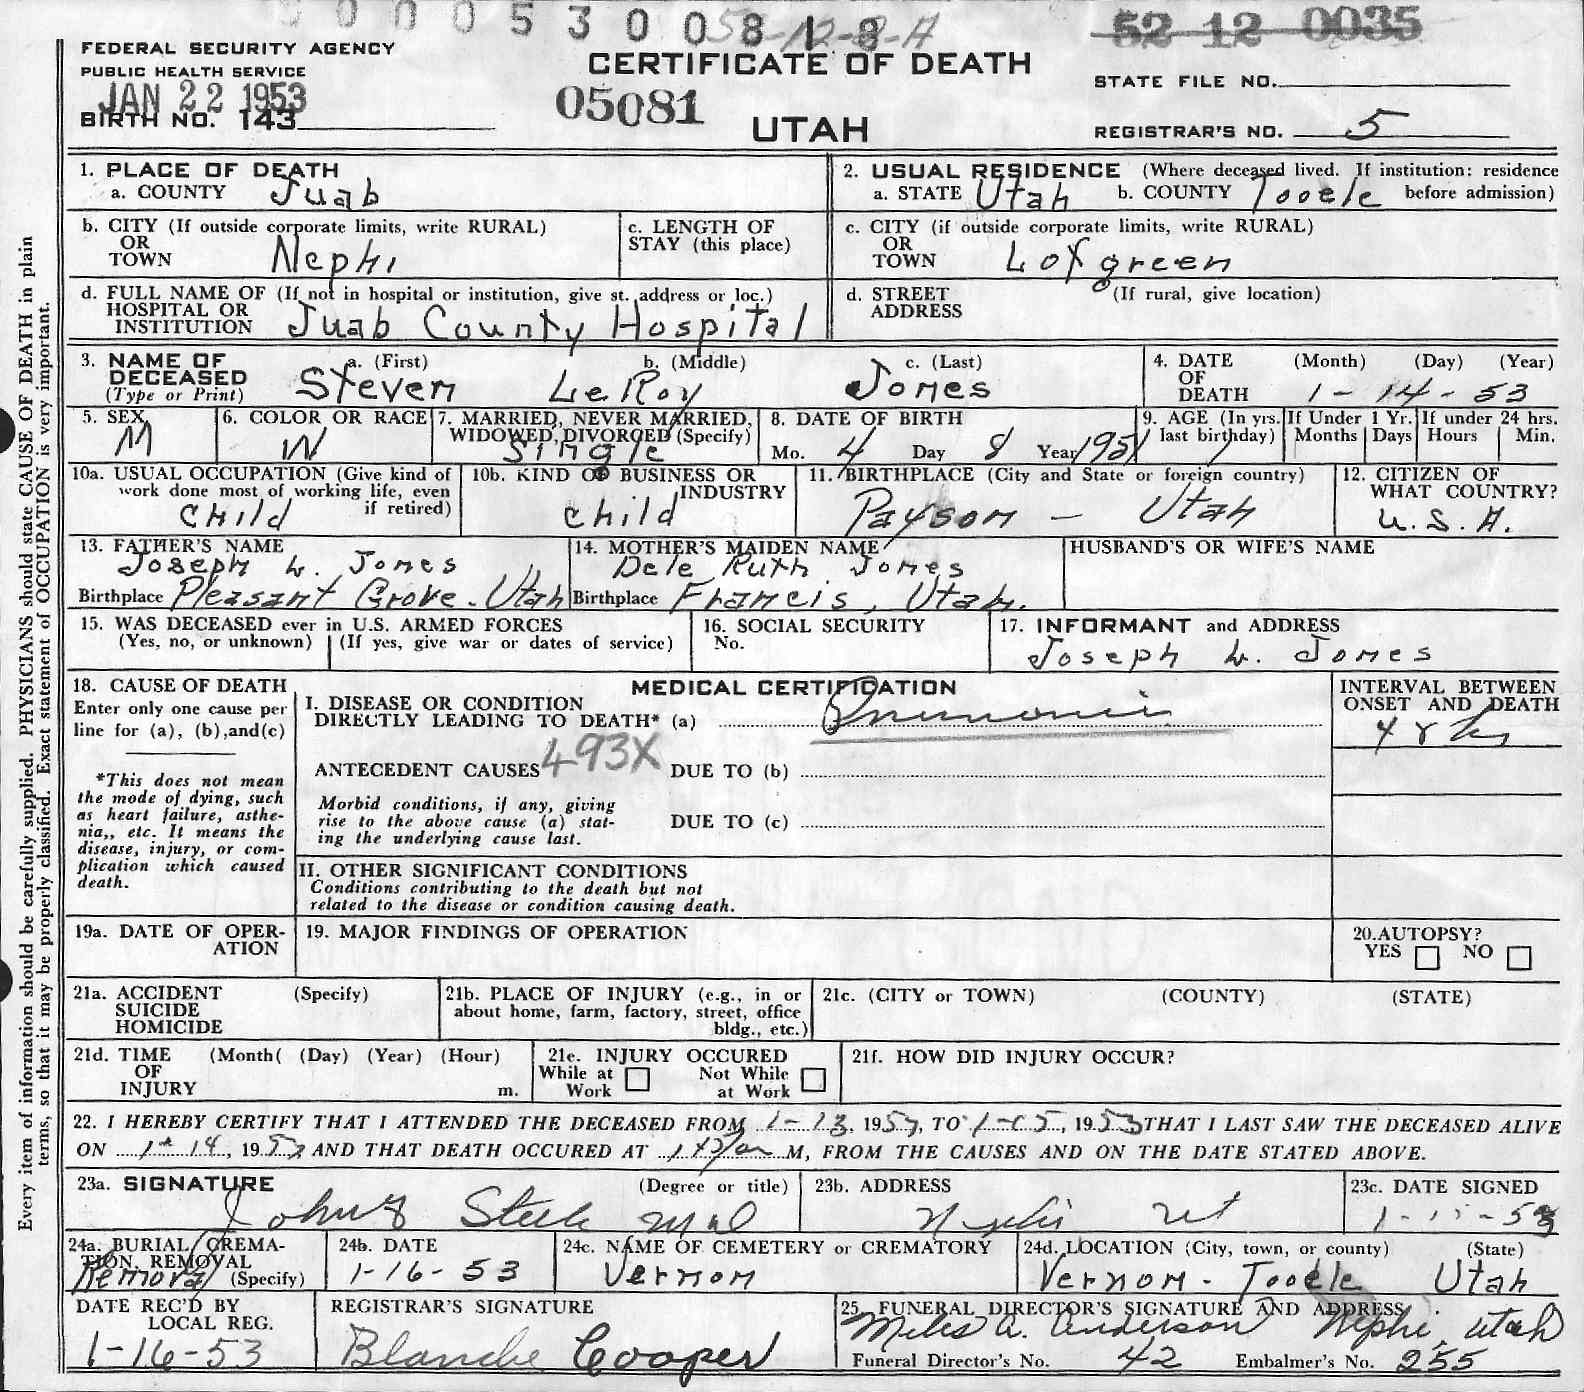 000530081 8
52-12-8-A
52 12 0035
FEDERAL SECURITY AGENCY
PUBLIC HEALTH SERVICE
JAN 22 1953
BIRTH NO. 143
CERTIFICATE OF DEATH
05081
UTAH
STATE FILE NO.
REGISTRAR'S NO. 5
1. PLACE OF DEATH
a. COUNTY Juab
2. USUAL RESIDENCE (Where deceased lived. If institution: residence
a. STATE Utah b. COUNTY Tooele before admission)
b. CITY (If outside corporate limits, write RURAL)
OR
TOWN Nephi
c. LENGTH OF
STAY (this place)
c. CITY (if outside corporate limits, write RURAL)
OR
TOWN Lofgreen
d. FULL NAME OF (If not in hospital or institution, give st. address or loc.)
HOSPITAL OR
INSTITUTION Juab County Hospital
d. STREET (If rural, give location)
ADDRESS
3. NAME OF
DECEASED
(Type or Print)
a. (First) b. (Middle) c. (Last)
Steven LeRoy Jones
4. DATE (Month) (Day) (Year)
OF
DEATH 1-14-53
5. SEX
M
6. COLOR OR RACE
W
7. MARRIED, NEVER MARRIED,
WIDOWED, DIVORCED (Specify)
Single
8. DATE OF BIRTH
Mo. 4 Day 8 Year 1951
9. AGE (In yrs.
last birthday)
1
If Under 1 Yr.
Months Days
If under 24 hrs.
Hours Min.
10a. USUAL OCCUPATION (Give kind of
work done most of working life, even
if retired)
Child
10b. KIND OF BUSINESS OR
INDUSTRY
Child
11. BIRTHPLACE (City and State or foreign country)
Payson - Utah
12. CITIZEN OF
WHAT COUNTRY?
U.S.A.
13. FATHER'S NAME
Joseph L. Jones
Birthplace Pleasant Grove. Utah
14. MOTHER'S MAIDEN NAME
Dele Ruth Jones
Birthplace Francis, Utah.
HUSBAND'S OR WIFE'S NAME
15. WAS DECEASED ever in U.S. ARMED FORCES
(Yes, no, or unknown) (If yes, give war or dates of service)
16. SOCIAL SECURITY
No.
17. INFORMANT and ADDRESS
Joseph L. Jones
18. CAUSE OF DEATH
Enter only one cause per
line for (a), (b), and (c)
*This does not mean
the mode of dying, such
as heart failure, asthe-
nia,, etc. It means the
disease, injury, or com-
plication which caused
death.
MEDICAL CERTIFICATION
I. DISEASE OR CONDITION
DIRECTLY LEADING TO DEATH* (a) Pneumonia
493X
ANTECEDENT CAUSES DUE TO (b)
Morbid conditions, if any, giving
rise to the above cause (a) stat-
ing the underlying cause last.
DUE TO (c)
INTERVAL BETWEEN
ONSET AND DEATH
II. OTHER SIGNIFICANT CONDITIONS
Conditions contributing to the death but not
related to the disease or condition causing death.
19a. DATE OF OPER-
ATION
19. MAJOR FINDINGS OF OPERATION
20. AUTOPSY?
YES NO
21a. ACCIDENT (Specify)
SUICIDE
HOMICIDE
21b. PLACE OF INJURY (e.g., in or
about home, farm, factory, street, office
bldg., etc.)
21c. (CITY or TOWN) (COUNTY) (STATE)
21d. TIME (Month( (Day) (Year) (Hour)
OF
INJURY m.
21e. INJURY OCCURED
While at Not While
Work at Work
21f. HOW DID INJURY OCCUR?
22. I HEREBY CERTIFY THAT I ATTENDED THE DECEASED FROM 1-13, 1953, TO 1-15, 1953 THAT I LAST SAW THE DECEASED ALIVE
ON 1-14, 1953 AND THAT DEATH OCCURED AT M, FROM THE CAUSES AND ON THE DATE STATED ABOVE.
23a. SIGNATURE (Degree or title)
John Steele MD
23b. ADDRESS
Nephi Ut
23c. DATE SIGNED
1-15-53
24a. BURIAL, CREMA-
TION, REMOVAL
(Specify)
Removal
24b. DATE
1-16-53
24c. NAME OF CEMETERY or CREMATORY
Vernon
24d. LOCATION (City, town, or county) (State)
Vernon - Tooele Utah
DATE REC'D BY
LOCAL REG.
1-16-53
REGISTRAR'S SIGNATURE
Blanche Cooper
25. FUNERAL DIRECTOR'S SIGNATURE AND ADDRESS
Miles A. Anderson Nephi, Utah
Funeral Director's No. 42 Embalmer's No. 255
Every item of information should be carefully supplied. PHYSICIANS should state CAUSE OF DEATH in plain
terms, so that it may be properly classified. Exact statement of OCCUPATION is very important.